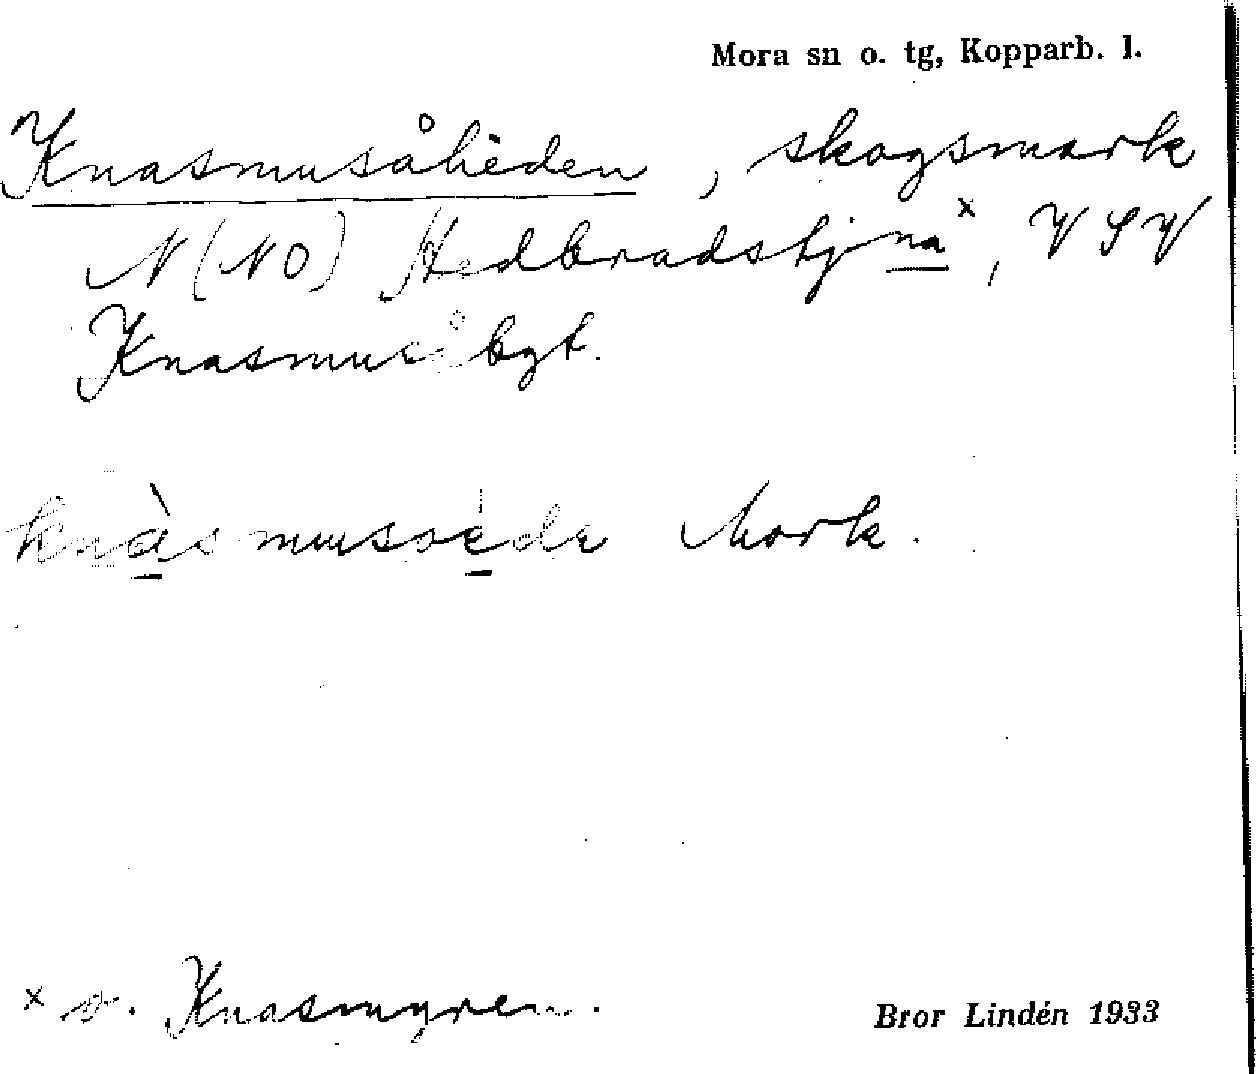 Mora sn o. tg, Kopparb. l.
Knasmusåheden, skogsmark
N (NO) Hedbradstjna ˣ, V SV
Knasmusåbgt.
knàsmusoède Mork.
ˣ o. Knasmyren.
Bror Lindén 1933